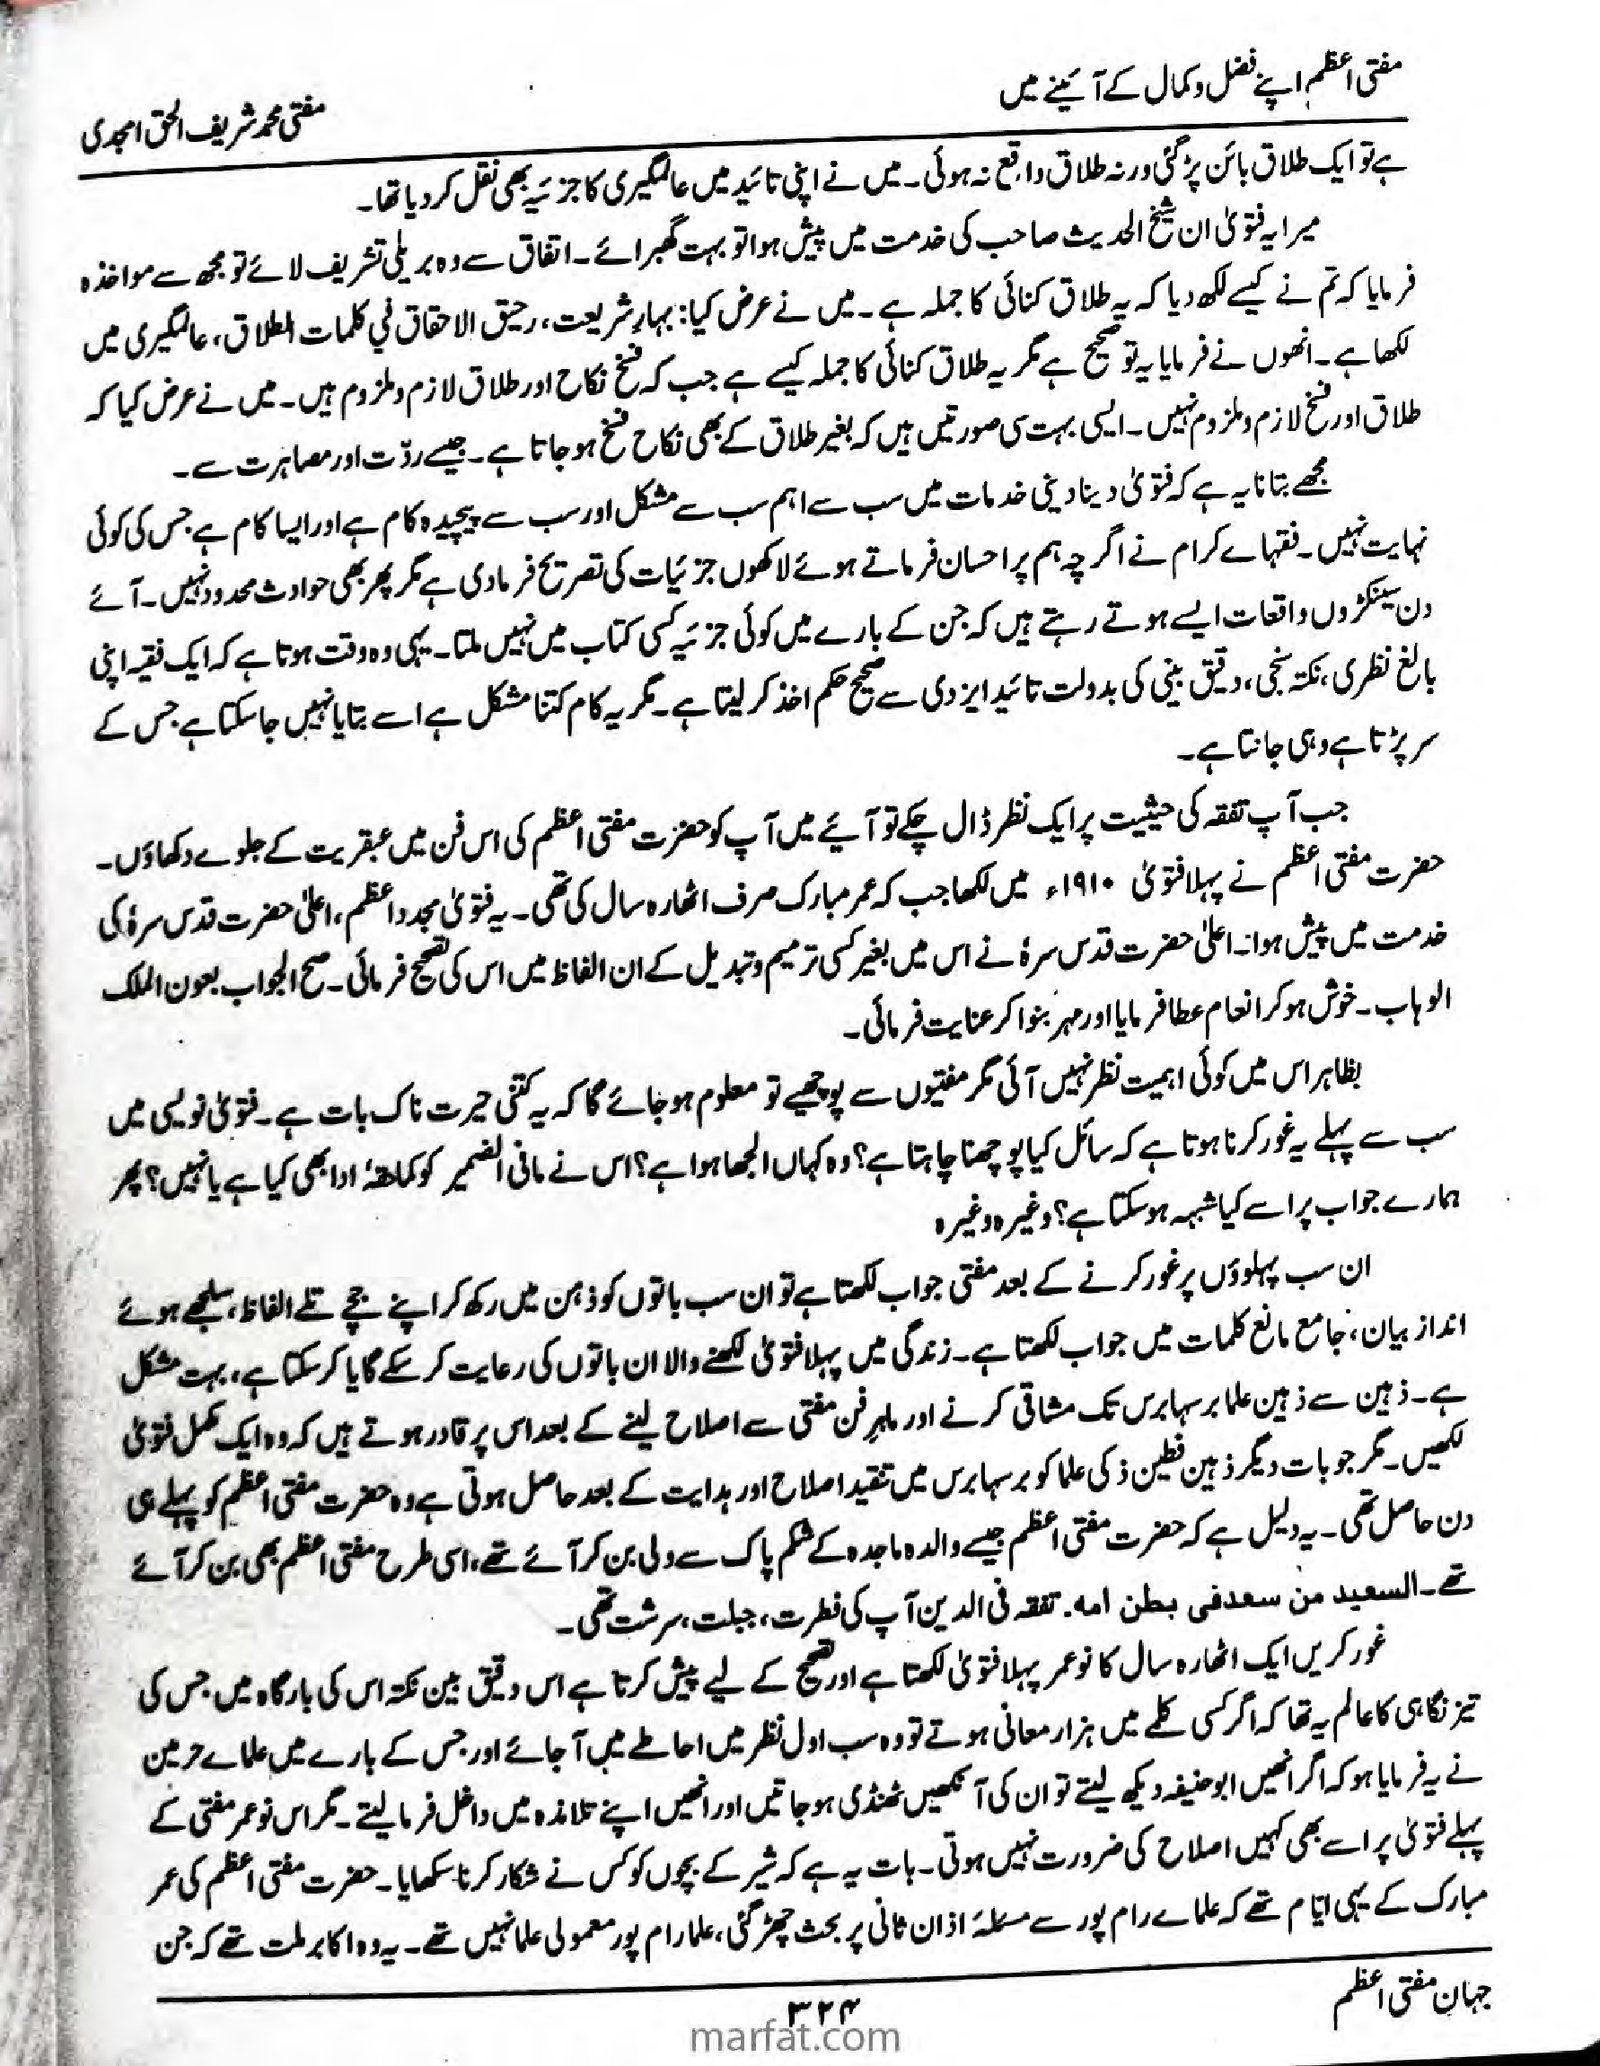 مفتی اعظم اپنے فضل و کمال کے آئینے میں
مفتی محمد شریف الحق امجدی
ہے تو ایک طلاق بائن پڑ گئی ورنہ طلاق واقع نہ ہوئی۔ میں نے اپنی تائید میں عالمگیری کا جزئیہ بھی نقل کر دیا تھا۔
میرا یہ فتویٰ ان شیخ الحدیث صاحب کی خدمت میں پیش ہوا تو بہت گھبرائے۔ اتفاق سے وہ بریلی تشریف لائے تو مجھ سے مواخذہ
فرمایا کہ تم نے کیسے لکھ دیا کہ یہ طلاق کنائی کا جملہ ہے۔ میں نے عرض کیا: بہار شریعت، رحیق الاحقاق في کلمات الطلاق، عالمگیری میں
لکھا ہے۔ انھوں نے فرمایا یہ تو صحیح ہے مگر یہ طلاق کنائی کا جملہ کیسے ہے جب کہ فسخ نکاح اور طلاق لازم و ملزوم ہیں۔ میں نے عرض کیا کہ
طلاق اور فسخ لازم و ملزوم نہیں۔ ایسی بہت سی صورتیں ہیں کہ بغیر طلاق کے بھی نکاح فسخ ہو جاتا ہے۔ جیسے ردّت اور مصاہرت سے۔
مجھے بتانا یہ ہے کہ فتویٰ دینا دینی خدمات میں سب سے اہم سب سے مشکل اور سب سے پیچیدہ کام ہے اور ایسا کام ہے جس کی کوئی
نہایت نہیں۔ فقہاے کرام نے اگرچہ ہم پر احسان فرماتے ہوئے لاکھوں جزئیات کی تصریح فرما دی ہے مگر پھر بھی حوادث محدود نہیں۔ آئے
دن سینکڑوں واقعات ایسے ہوتے رہتے ہیں کہ جن کے بارے میں کوئی جزئیہ کسی کتاب میں نہیں ملتا۔ یہی وہ وقت ہوتا ہے کہ ایک فقیہ اپنی
بالغ نظری، نکتہ سنجی، دقیق بینی کی بدولت تائید ایزدی سے صحیح حکم اخذ کر لیتا ہے۔ مگر یہ کام کتنا مشکل ہے اسے بتایا نہیں جا سکتا ہے جس کے
سر پڑتا ہے وہی جانتا ہے۔
جب آپ تفقہ کی حیثیت پر ایک نظر ڈال چکے تو آئیے میں آپ کو حضرت مفتی اعظم کی اس فن میں عبقریت کے جلوے دکھاؤں۔
حضرت مفتی اعظم نے پہلا فتویٰ ۱۹۱۰ء میں لکھا جب کہ عمر مبارک صرف اٹھارہ سال کی تھی۔ یہ فتویٰ مجدد اعظم، اعلیٰ حضرت قدس سرہٗ کی
خدمت میں پیش ہوا۔ اعلیٰ حضرت قدس سرہٗ نے اس میں بغیر کسی ترمیم و تبدیل کے ان الفاظ میں اس کی تصحیح فرمائی۔ صح الجواب بعون الملک
الوہاب۔ خوش ہو کر انعام عطا فرمایا اور مہر بنوا کر عنایت فرمائی۔
بظاہر اس میں کوئی اہمیت نظر نہیں آئی مگر مفتیوں سے پوچھیے تو معلوم ہو جائے گا کہ یہ کتنی حیرت ناک بات ہے۔ فتویٰ نویسی میں
سب سے پہلے یہ غور کرنا ہوتا ہے کہ سائل کیا پوچھنا چاہتا ہے؟ وہ کہاں الجھا ہوا ہے؟ اس نے مافی الضمیر کو کماحقہٗ ادا بھی کیا ہے یا نہیں؟ پھر
ہمارے جواب پر اسے کیا شبہہ ہو سکتا ہے؟ وغیرہ وغیرہ
ان سب پہلوؤں پر غور کرنے کے بعد مفتی جواب لکھتا ہے تو ان سب باتوں کو ذہن میں رکھ کر اپنے جچے تلے الفاظ، سلجھے ہوئے
انداز بیان، جامع مانع کلمات میں جواب لکھتا ہے۔ زندگی میں پہلا فتویٰ لکھنے والا ان باتوں کی رعایت کر سکے گا یا کر سکتا ہے، بہت مشکل
ہے۔ ذہین سے ذہین علما برسہا برس تک مشاقی کرنے اور ماہرِ فن مفتی سے اصلاح لینے کے بعد اس پر قادر ہوتے ہیں کہ وہ ایک مکمل فتویٰ
لکھیں۔ مگر جو بات دیگر ذہین فطین ذکی علما کو برسہا برس میں تنقید اصلاح اور ہدایت کے بعد حاصل ہوتی ہے وہ حضرت مفتی اعظم کو پہلے ہی
دن حاصل تھی۔ یہ دلیل ہے کہ حضرت مفتی اعظم جیسے والدہ ماجدہ کے شکم پاک سے ولی بن کر آئے تھے، اسی طرح مفتی اعظم بھی بن کر آئے
تھے۔ السعید من سعد فی بطن امہ۔ تفقہ فی الدین آپ کی فطرت، جبلت، سرشت تھی۔
غور کریں ایک اٹھارہ سال کا نو عمر پہلا فتویٰ لکھتا ہے اور تصحیح کے لیے پیش کرتا ہے اس دقیق بین نکتہ اس کی بارگاہ میں جس کی
تیز نگاہی کا عالم یہ تھا کہ اگر کسی کلمے میں ہزار معانی ہوتے تو وہ سب اول نظر میں احاطے میں آ جائے اور جس کے بارے میں علماے حرمین
نے یہ فرمایا ہو کہ اگر انھیں ابو حنیفہ دیکھ لیتے تو ان کی آنکھیں ٹھنڈی ہو جاتیں اور انھیں اپنے تلامذہ میں داخل فرما لیتے۔ مگر اس نو عمر مفتی کے
پہلے فتویٰ پر اسے بھی کہیں اصلاح کی ضرورت نہیں ہوتی۔ بات یہ ہے کہ شیر کے بچوں کو کس نے شکار کرنا سکھایا۔ حضرت مفتی اعظم کی عمر
مبارک کے یہی ایّام تھے کہ علماے رام پور سے مسئلۂ اذان ثانی پر بحث چھڑ گئی، علما رام پور معمولی علما نہیں تھے۔ یہ وہ اکابر ملت تھے کہ جن
جہان مفتی اعظم
۳۲۴
marfat.com